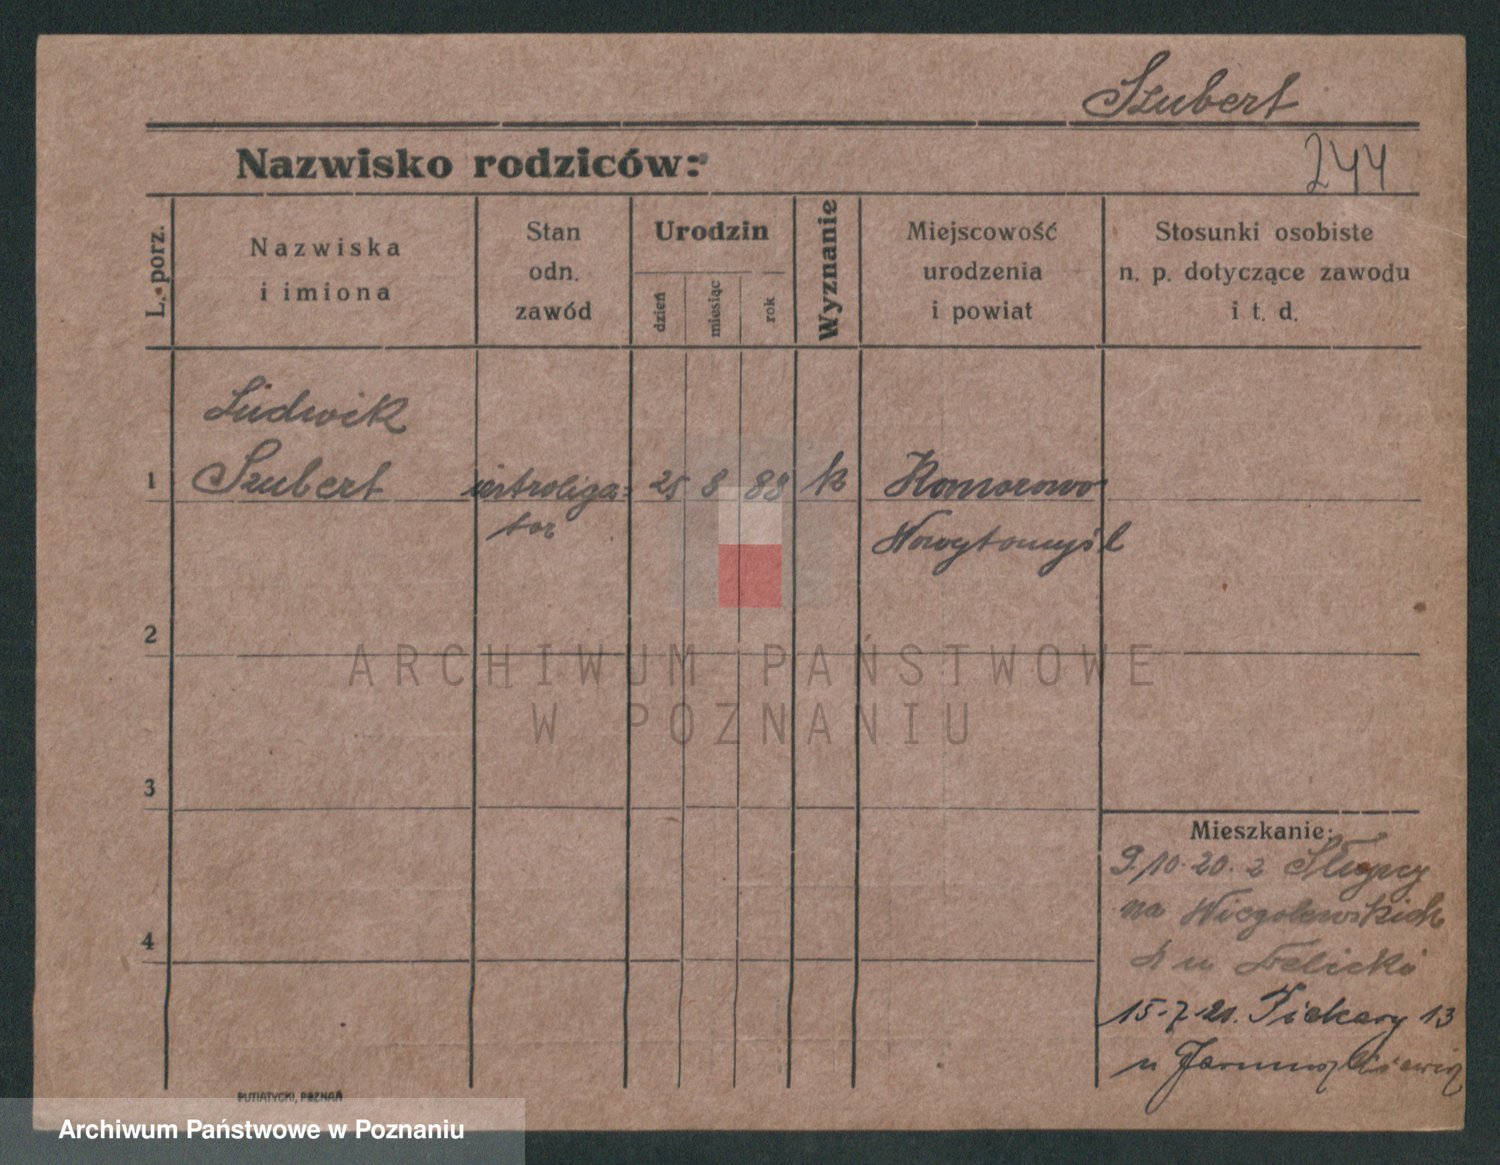 Szubert
Nazwisko rodziców:
244
L. porz.
Nazwiska
i imiona
Stan
odn.
zawód
Urodzin
dzień
miesiąc
rok
Wyznanie
Miejscowość
urodzenia
i powiat
Stosunki osobiste
n. p. dotyczące zawodu
i t. d.
Ludwik
1 Szubert introliga= 25 8 88 k Komorowo
tor Nowytomyśl
2
ARCHIWUM PAŃSTWOWE
W POZNANIU
3
Mieszkanie:
9.10.20. z Słupcy
na
4
u
15-7-21. Piekary 13
u
PUTIATYCKI, POZNAŃ
Archiwum Państwowe w Poznaniu